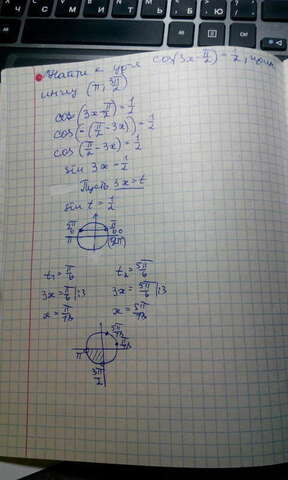 Найти к ур-я cos(3x-π/2)=1/2, прин
инт-лу (π; 3π/2)
cos(3x-π/2)=1/2
cos(-(π/2-3x))=1/2
cos(π/2-3x)=1/2
sin 3x=1/2
Пусть 3x=t
sin t=1/2
5π/6 π/6
π 0 (2π)
t₁=π/6 t₂=5π/6
3x=π/6 |:3 3x=5π/6 |:3
x=π/18 x=5π/18
5π/18
π/18
π
3π/2